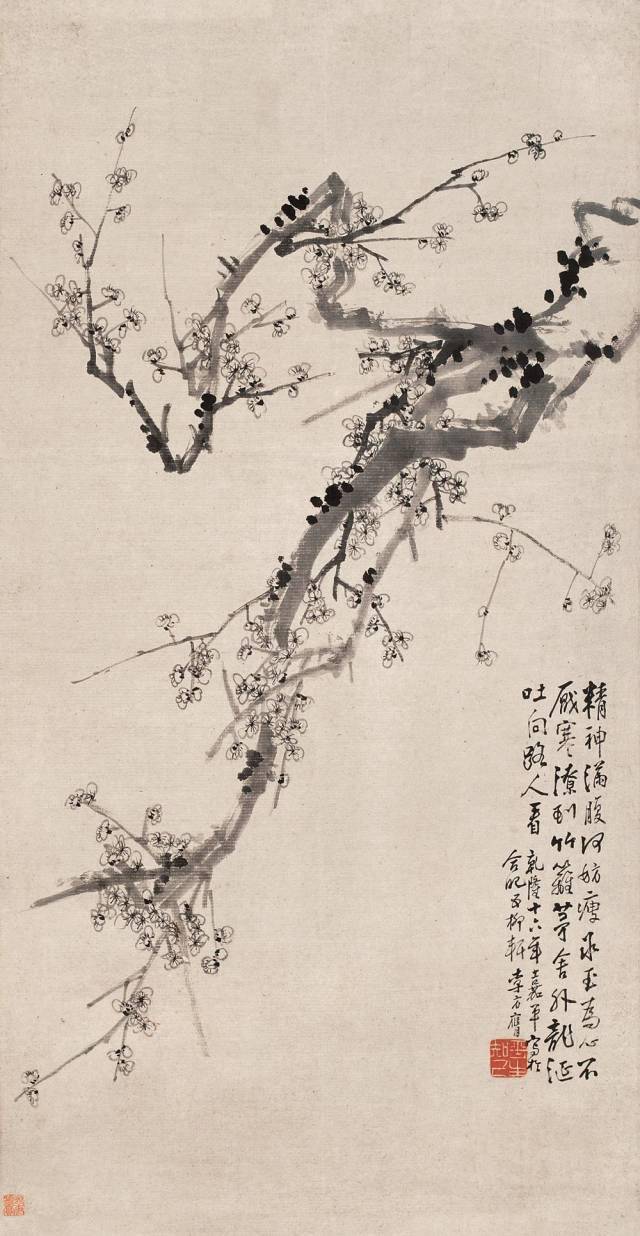 精神滿腹何妨瘦氷玉為心不
厭寒潦到竹籬茅舍外龍涎
吐向路人看
乾隆十六年嘉平寫於
合肥五柳軒李方膺
平生知己